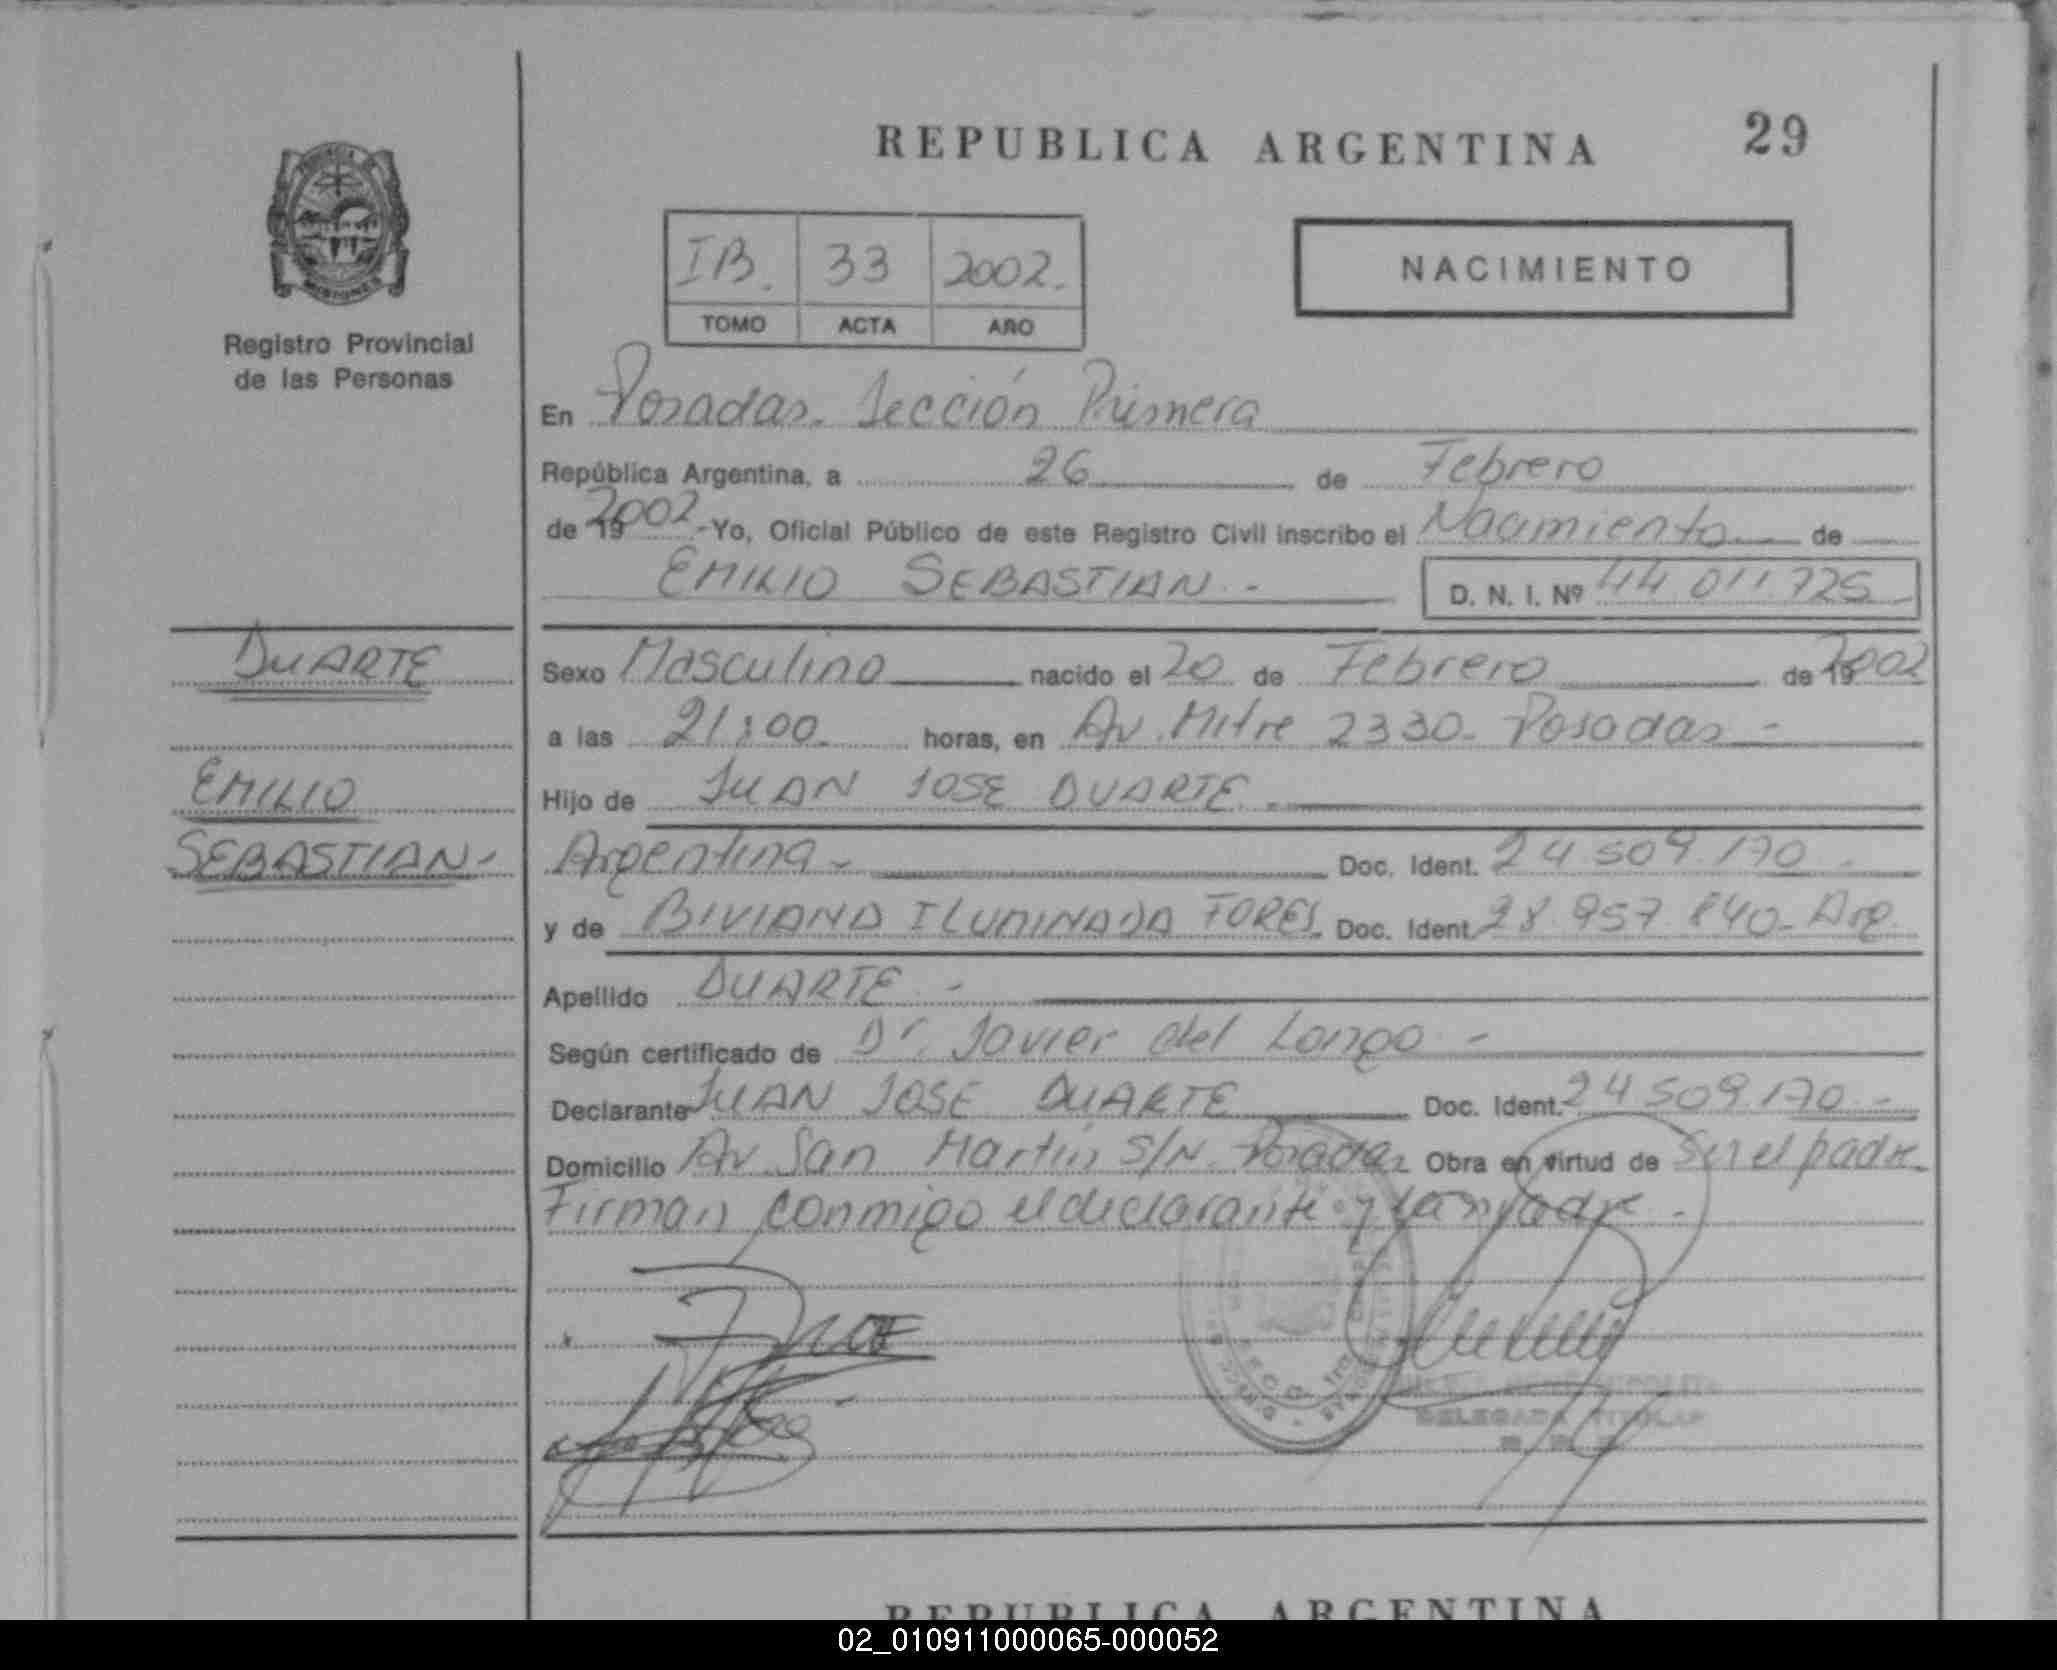 REPUBLICA ARGENTINA 29
IB. 33 2002.
TOMO ACTA AÑO
NACIMIENTO
MISIONES
Registro Provincial
de las Personas
En Posadas. Sección Primera
República Argentina, a 26 de Febrero
de 19 2002 - Yo, Oficial Público de este Registro Civil inscribo el Nacimiento de
EMILIO SEBASTIAN. - D. N. I. Nº 44 011.725
DUARTE
EMILIO
SEBASTIAN -
Sexo Masculino nacido el 20 de Febrero de 19 2002
a las 21:00 horas, en Av. Mitre 2330. Posadas -
Hijo de JUAN JOSE DUARTE -
Argentina - Doc. Ident. 24 509.170 -
y de BIVIANA ILUMINADA FORES. Doc. Ident. 28 957.840 - Arg.
Apellido DUARTE -
Según certificado de Dr. Javier del Longo -
Declarante JUAN JOSE DUARTE Doc. Ident. 24 509.170 -
Domicilio Av. San Martín S/N. Posadas Obra en virtud de Ser el padre.
Firman conmigo el declarante y la madre -
DELEGADA TITULAR
REPUBLICA ARGENTINA
02_010911000065-000052